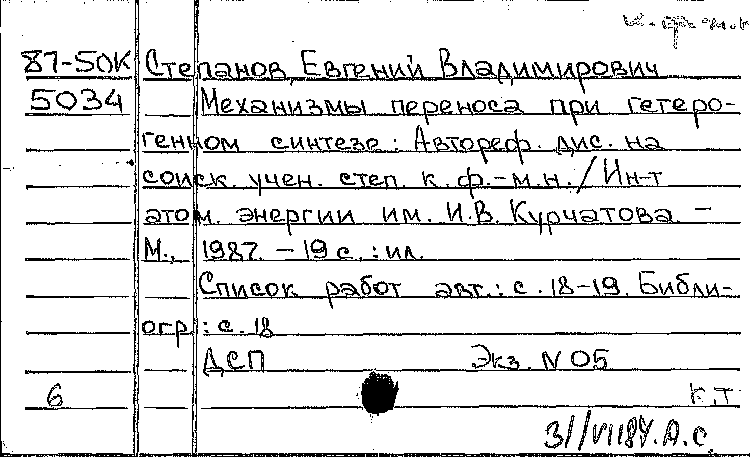 к.ф.-м.н
87-50К Степанов, Евгений Владимирович
5034 Механизмы переноса при гетеро-
генном синтезе: Автореф. дис. на
соиск. учен. степ. к. ф.-м.н. / Ин-т
атом. энергии им. И.В. Курчатова. –
М., 1987. – 19 с. : ил.
Список работ авт.: с. 18-19. Библи-
огр.: с. 18
ДСП Экз. N 05
6 К.Т
А.С.